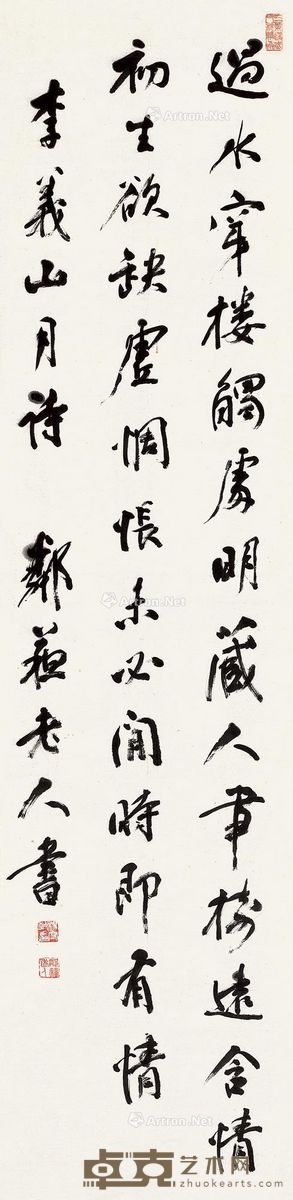 過水穿樓觸處明藏人帶樹遠含情
初生欲缺虛惆悵未必圓時即有情
李義山月詩 鄰蘇老人書
Artron.Net
Artron.Net
Artron.Net
Artron.Net
Artron.Net
Artron.Net
卓克艺术网
zhuokearts.com